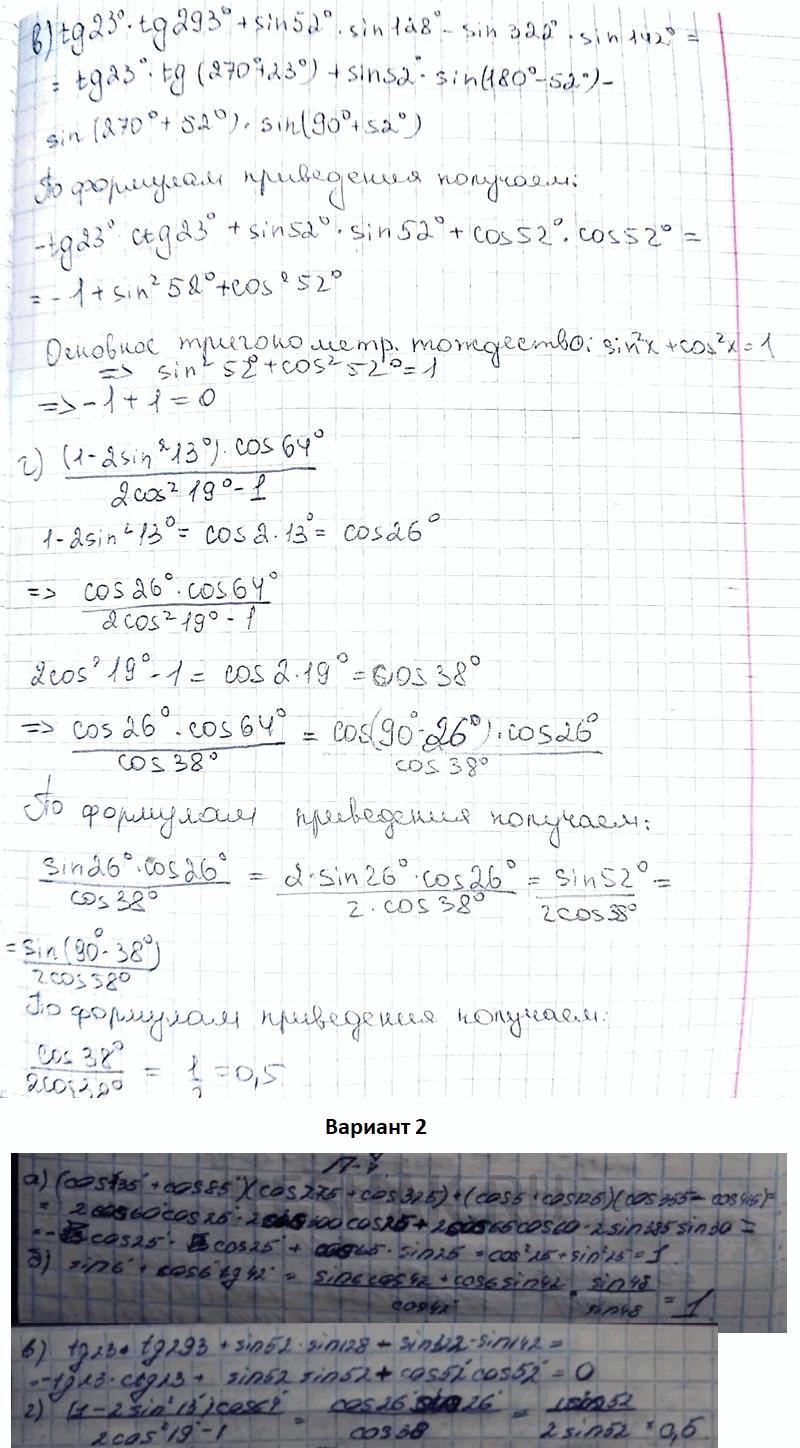 в) tg23°·tg293°+sin52°·sin128°-sin322°·sin142°=
= tg23°·tg(270°+23°)+sin52°·sin(180°-52°)-
sin(270°+52°)·sin(90°+52°)
По формулам приведения получаем:
-tg23° ctg23°+sin52°·sin52°+cos52°·cos52°=
=-1+sin²52°+cos²52°
Основное тригонометр. тождество: sin²x+cos²x=1
=> sin²52°+cos²52°=1
=>-1+1=0
г) (1-2sin²13°)·cos64°
2cos²19°-1
1-2sin²13°= cos2·13°= cos26°
=> cos26°·cos64°
2cos²19°-1
2cos²19°-1= cos2·19°=cos38°
=> cos26°·cos64° = cos(90°-26°)·cos26°
cos38° cos38°
По формулам приведения получаем:
sin26°·cos26° = 2·sin26°·cos26° = sin52° =
cos38° 2·cos38° 2cos38°
= sin(90°-38°)
2cos38°
По формулам приведения получаем:
cos38° = 1 =0,5
2cos38° 2
Вариант 2
а) (cos35+cos85)(cos275+cos325)+(cos5+cos125)(cos355-cos415)=
= 2cos60cos25·2cos300cos25+2cos65cos60·2sin385sin30=
cos25· cos25+cos65·sin25=cos²25+sin²25=1
б) sin6+cos6 tg42 = sin6cos42+cos6sin42 = sin48 = 1
cos42 sin48
в) tg23·tg293+sin52·sin128-sin322·sin142=
=-tg23·ctg23+ sin52 sin52+cos52cos52=0
г) (1-2sin²13)cos64 = cos26 sin26 = sin52 =0,5
2cos²19-1 cos38 2sin52